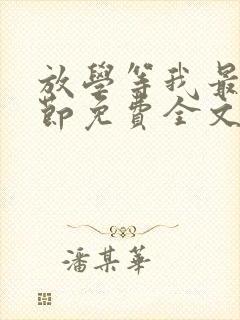 放學等我最
節免費全文
潘某華